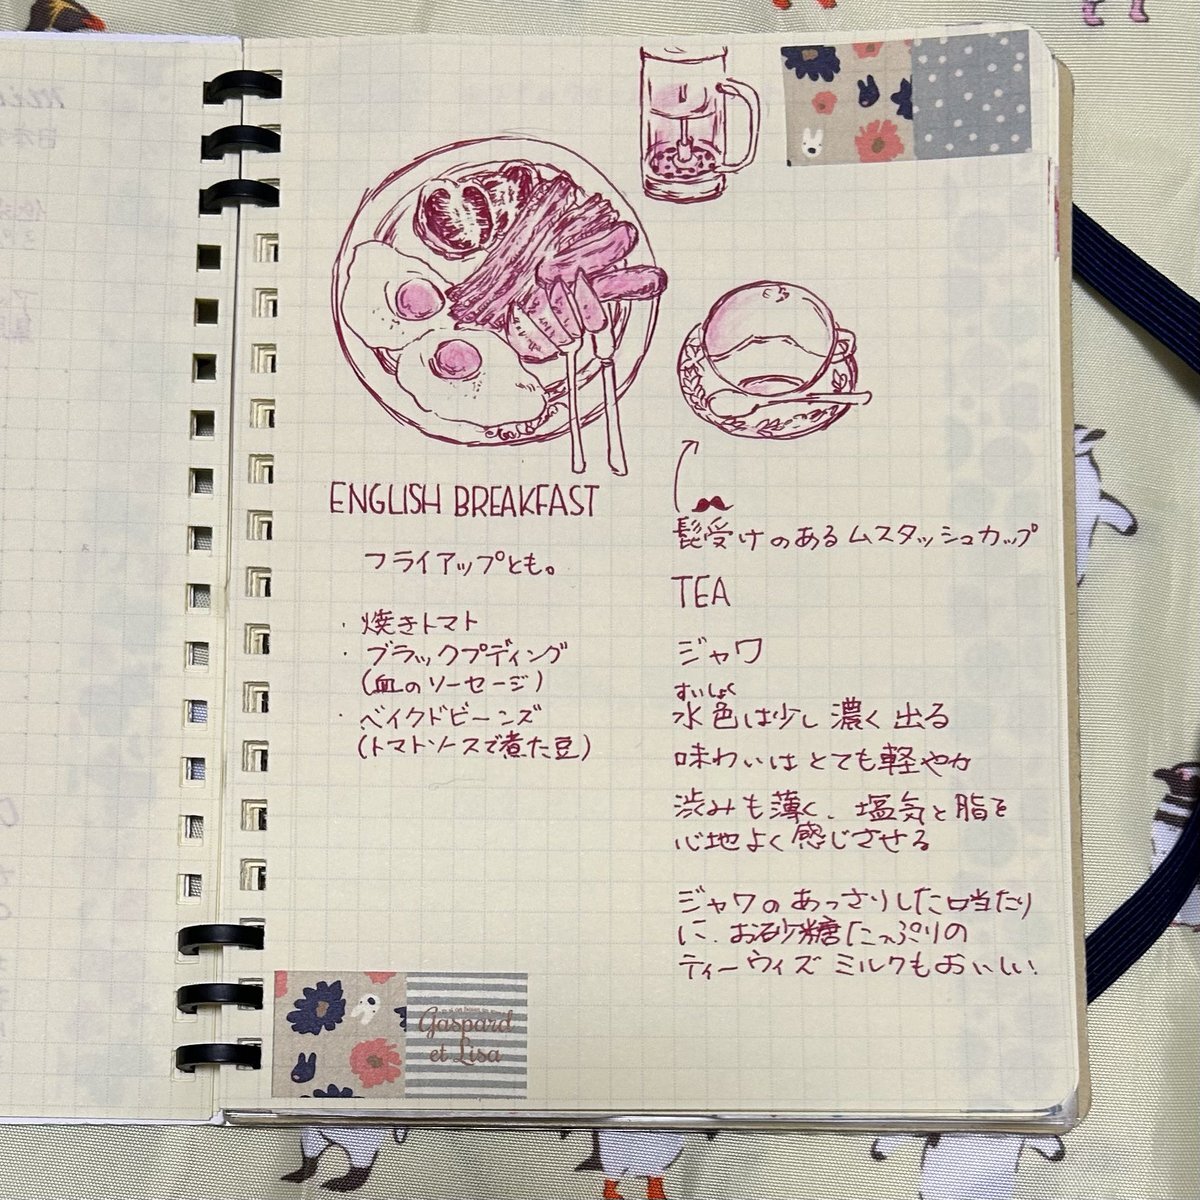 ENGLISH BREAKFAST
フライアップとも。
・焼きトマト
・ブラックプディング
(血のソーセージ)
・ベイクドビーンズ
(トマトソースで煮た豆)
髭受けのあるムスタッシュカップ
TEA
ジャワ
すいしょく
水色は少し濃く出る
味わいはとても軽やか
渋みも薄く、塩気と脂を
心地よく感じさせる
ジャワのあっさりした口当たり
に、お砂糖たっぷりの
ティーウィズミルクもおいしい。
Gaspard
et Lisa